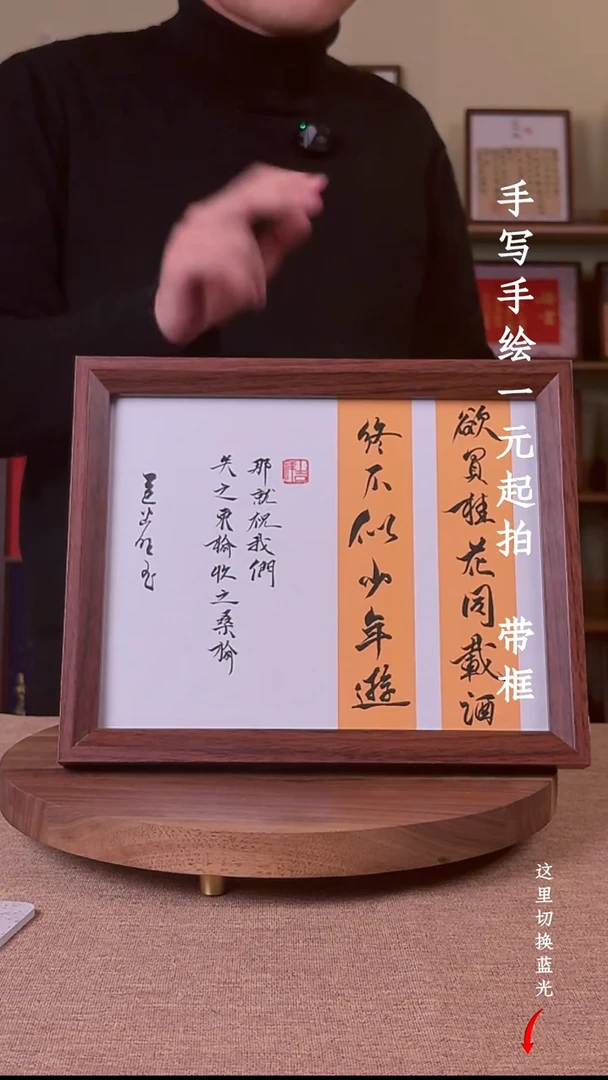 手写手绘一元起拍 带框
欲買桂花同載酒
終不似少年遊
那就祝我們
失之東榆收之桑榆
这里切换蓝光